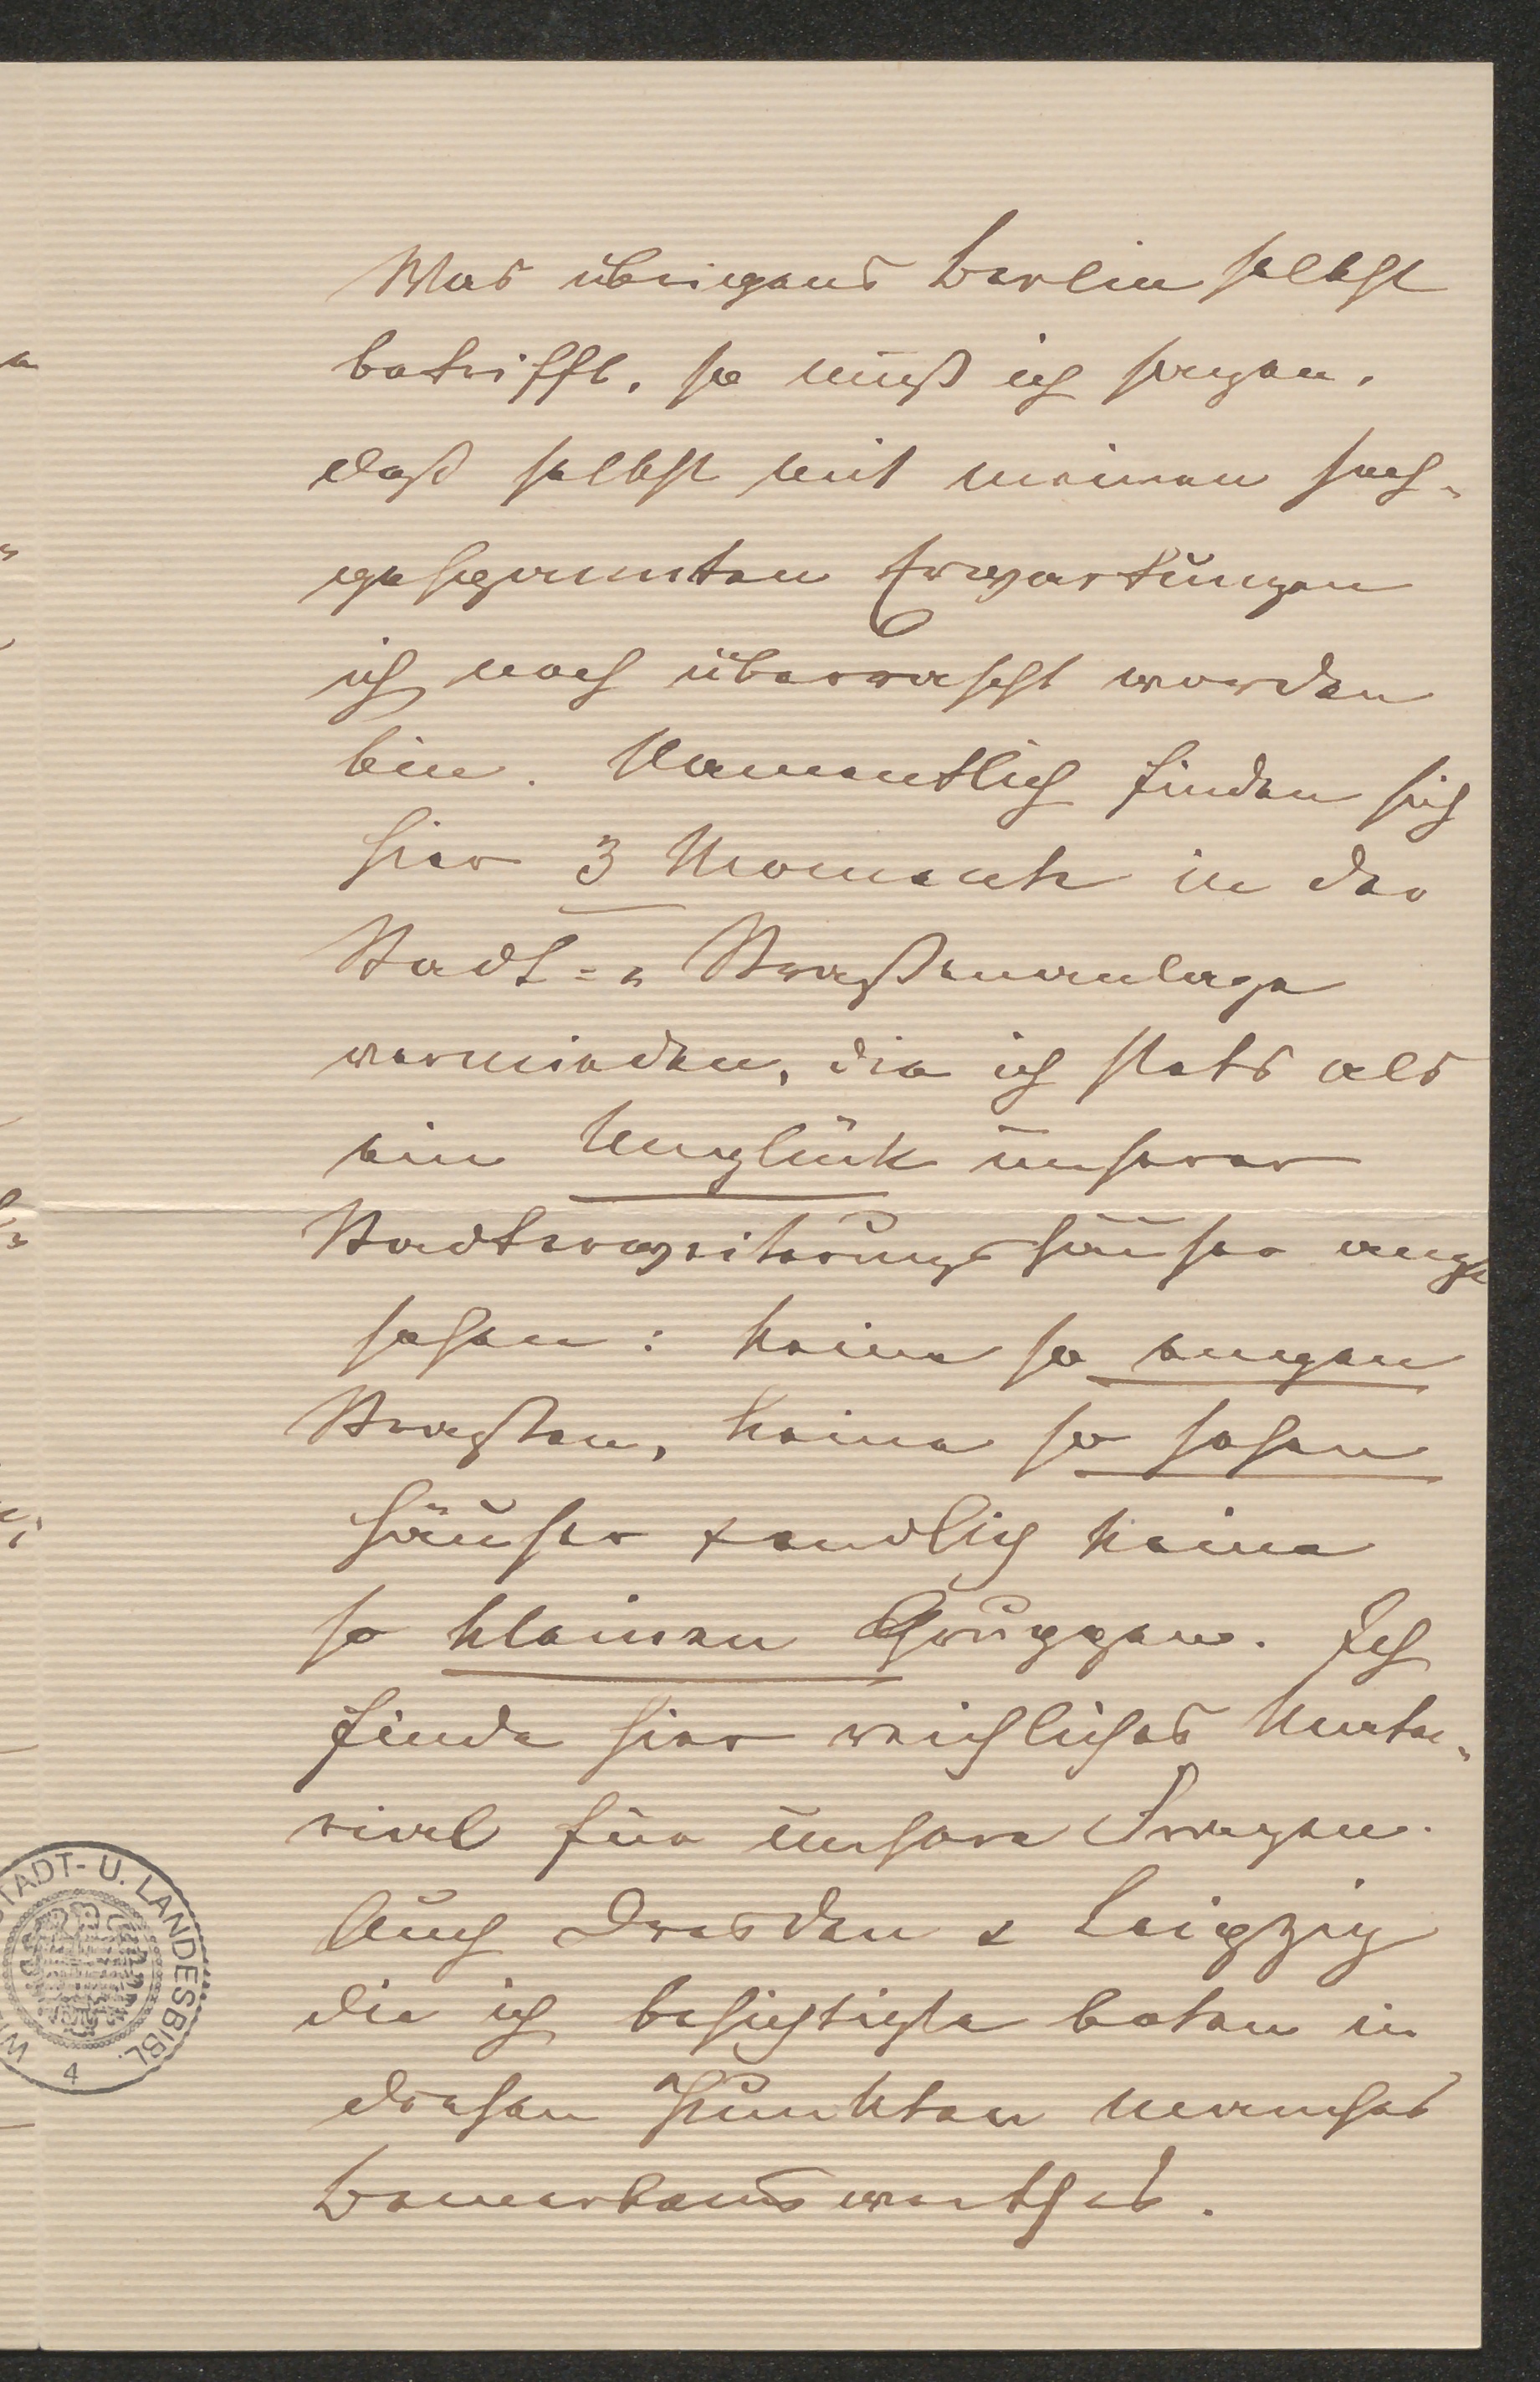 Was übrigens Berlin selbst
betrifft, so muß ich sagen,
daß selbst mit meinen hoch-
gespannten Erwartungen
ich noch überrascht worden
bin. Namentlich finden sich
hier 3 Momente in der
Stadt- u Straßenanlage
vermieden, die ich stets als
ein Unglück unserer
Stadterweiterungshäuser ange
sehen: keine so engen
Straßen, keine so hohen
Häuser & endlich keine
so kleinen Gruppen. Ich
finde hier reichliches Mate-
rial für unsere Fragen.
Auch Dresden & Leipzig
die ich besichtigte boten in
diesen Punkten manches
Bemerkenswerthes.
STADT- U. LANDESBIBL.
4